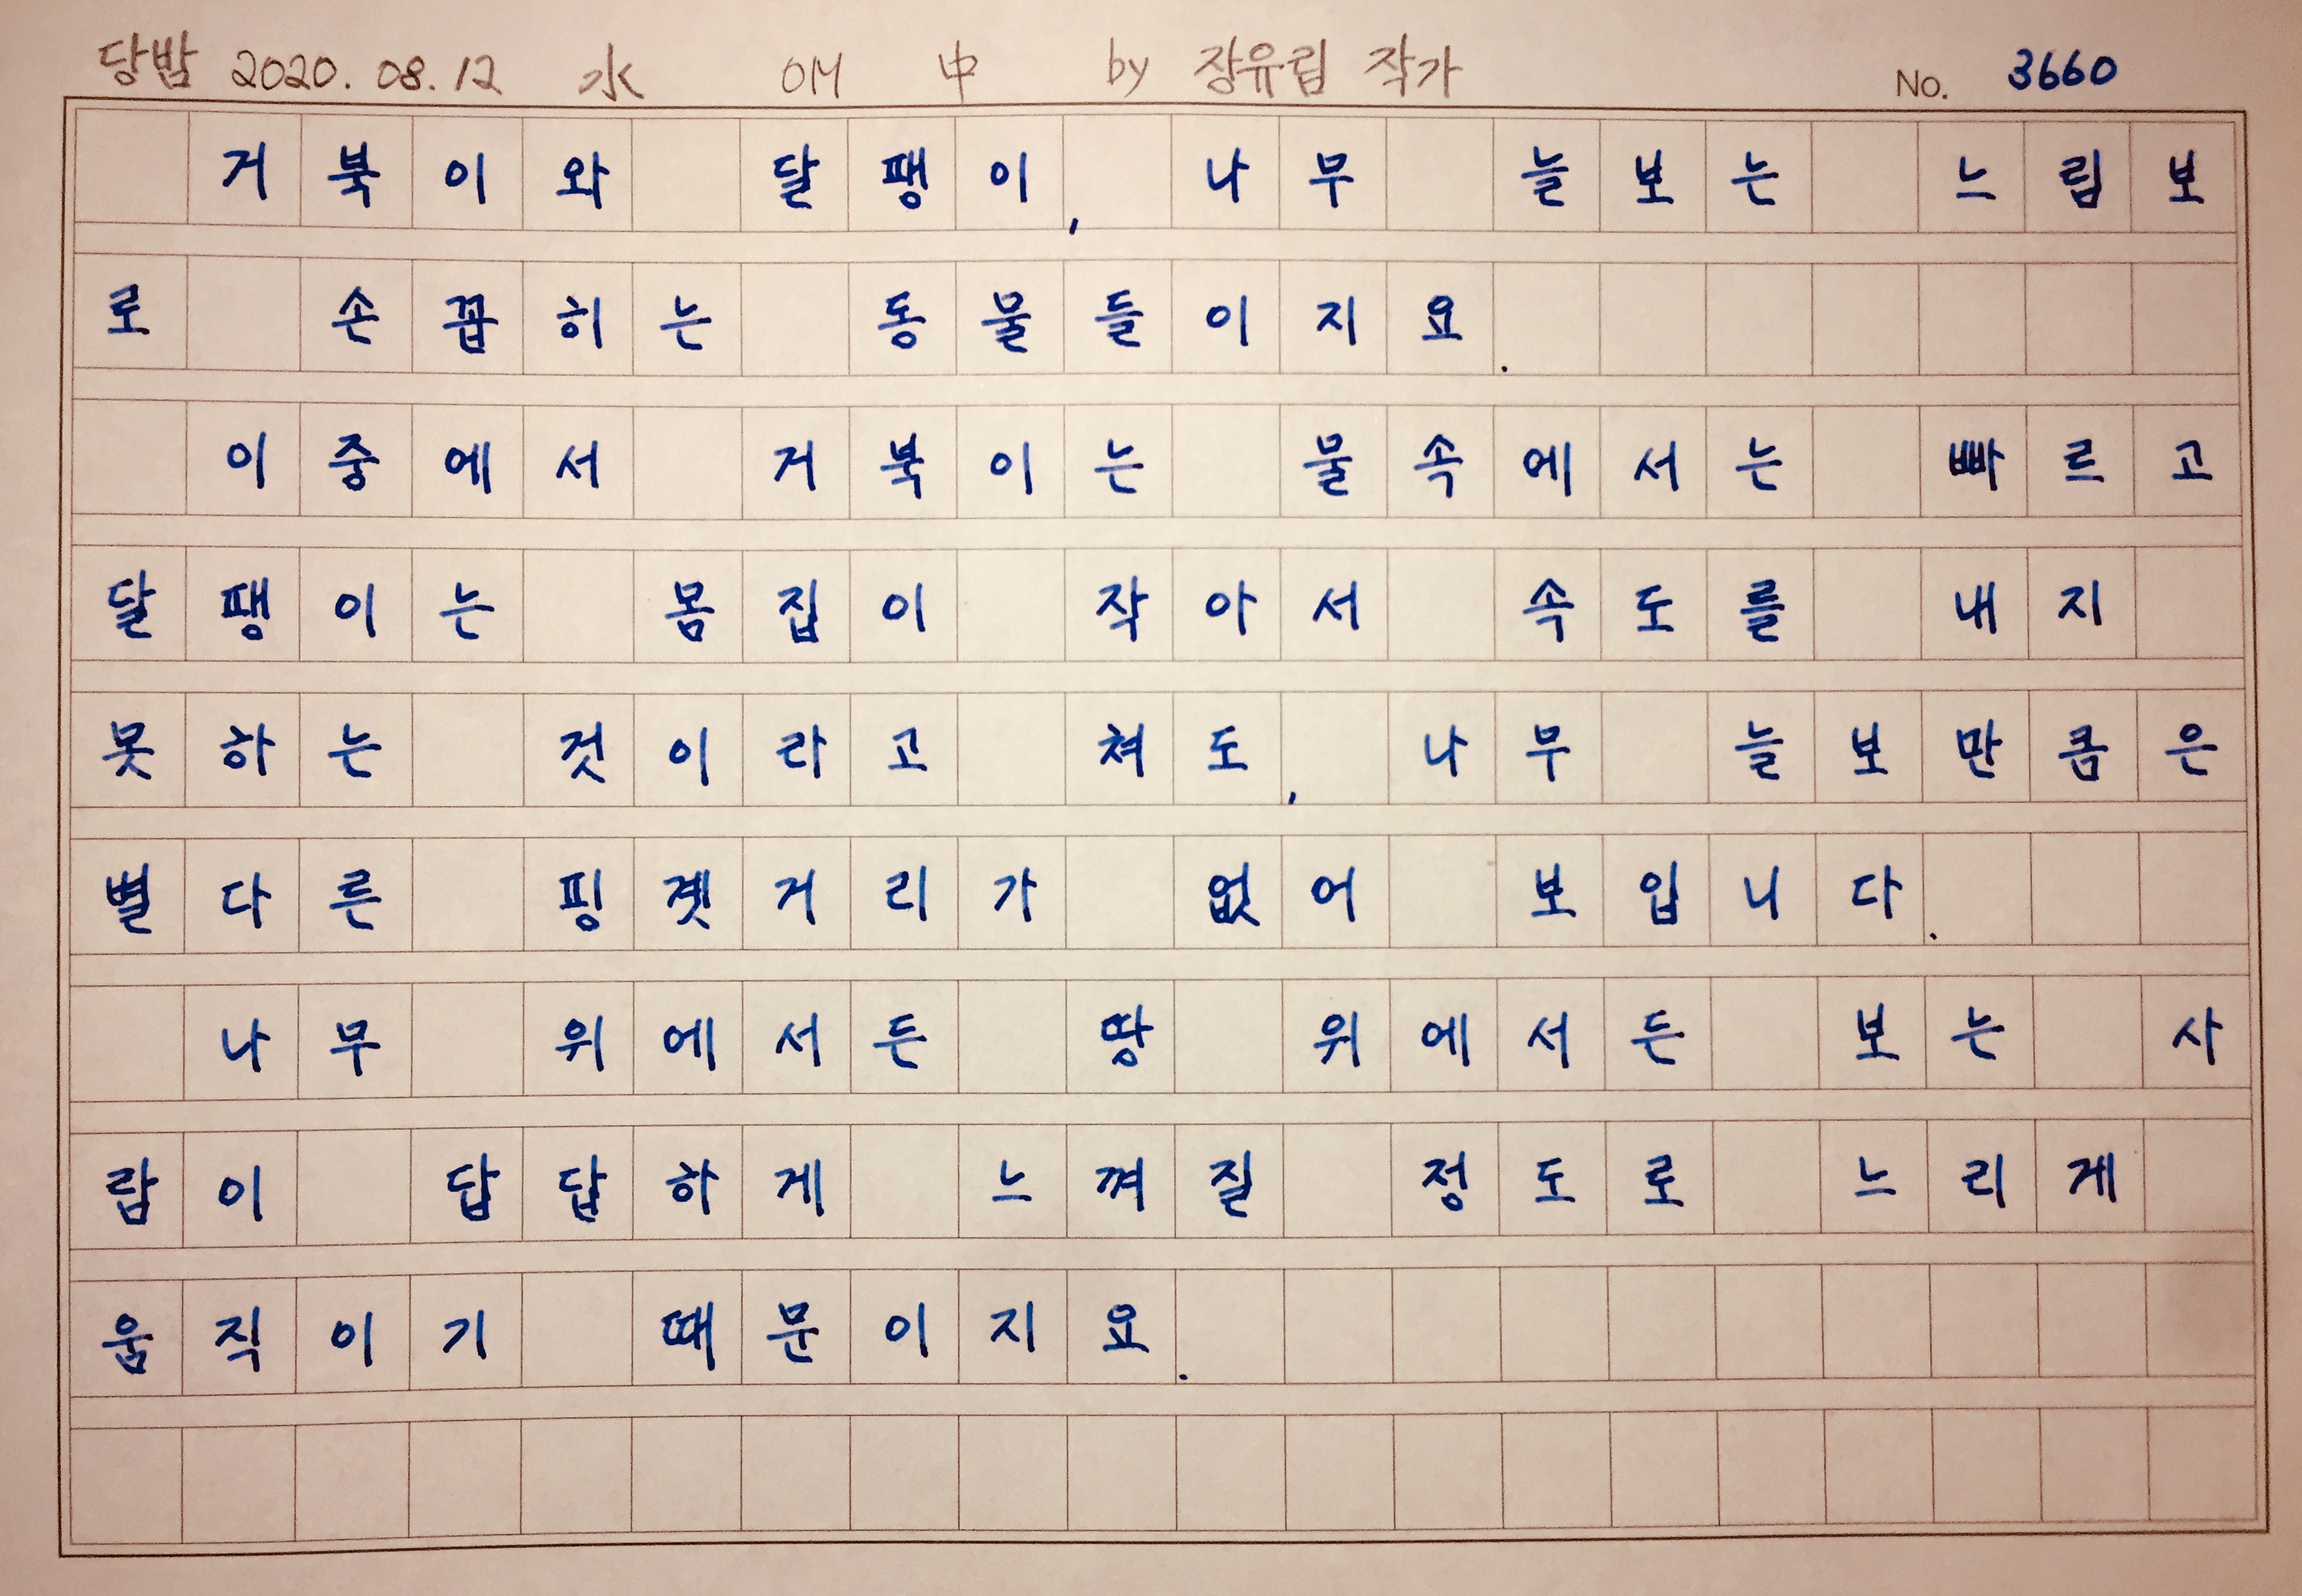 당밤 2020. 08. 12 水 OM 中 by 장유림 작가 No. 3660
거북이와 달팽이, 나무 늘보는 느림보
로 손꼽히는 동물들이지요.
이중에서 거북이는 물속에서는 빠르고
달팽이는 몸집이 작아서 속도를 내지
못하는 것이라고 쳐도, 나무 늘보만큼은
별다른 핑곗거리가 없어 보입니다.
나무 위에서든 땅 위에서든 보는 사
람이 답답하게 느껴질 정도로 느리게
움직이기 때문이지요.